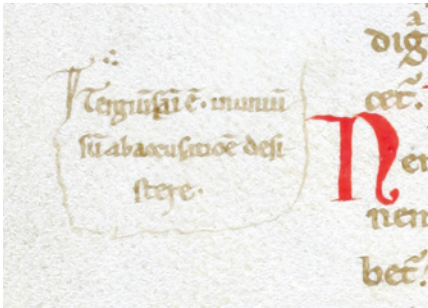 Tergiūsāi ē. inuniū
sū abaccusatiōe desi
stere.
dig̃
cet̃.
N
er
nen
bet̃.